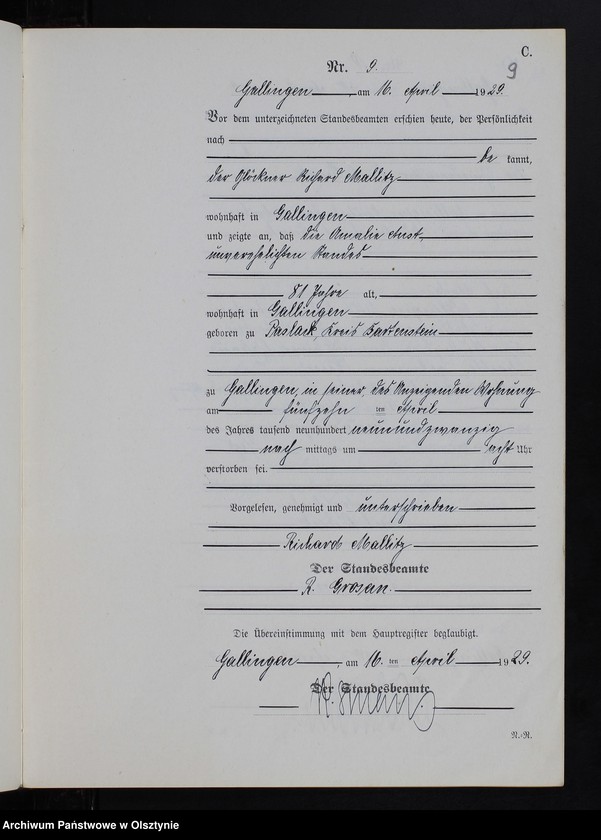 C.
9
Nr. 9.
Gallingen, am 16. April 1929.
Vor dem unterzeichneten Standesbeamten erschien heute, der Persönlichkeit
nach
be kannt,
der Glöckner Richard Mallitz
wohnhaft in Gallingen
und zeigte an, daß die Amalie
unverehelichten Standes
81 Jahre alt,
wohnhaft in Gallingen
geboren zu Paslack, Kreis Bartenstein
zu Gallingen, in seiner, des Anzeigenden Wohnung
am fünfzehn ten April
des Jahres tausend neunhundert neunundzwanzig
nach mittags um acht Uhr
verstorben sei.
Vorgelesen, genehmigt und unterschrieben
Richard Mallitz
Der Standesbeamte
R.
Die Übereinstimmung mit dem Hauptregister beglaubigt.
Gallingen, am 16. ten April 1929.
Der Standesbeamte
R.
N.-R.
Archiwum Państwowe w Olsztynie